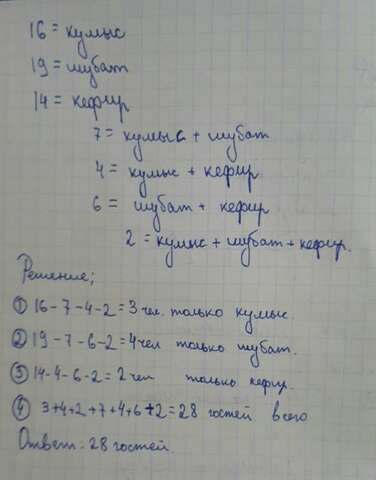 16 = кумыс
19 = шубат
14 = кефир
7 = кумыс + шубат
4 = кумыс + кефир
6 = шубат + кефир
2 = кумыс + шубат + кефир.
Решение;
① 16-7-4-2=3 чел. только кумыс.
② 19-7-6-2=4чел только шубат.
③ 14-4-6-2=2 чел только кефир.
④ 3+4+2+7+4+6+2=28 гостей всего
Ответ: 28 гостей.